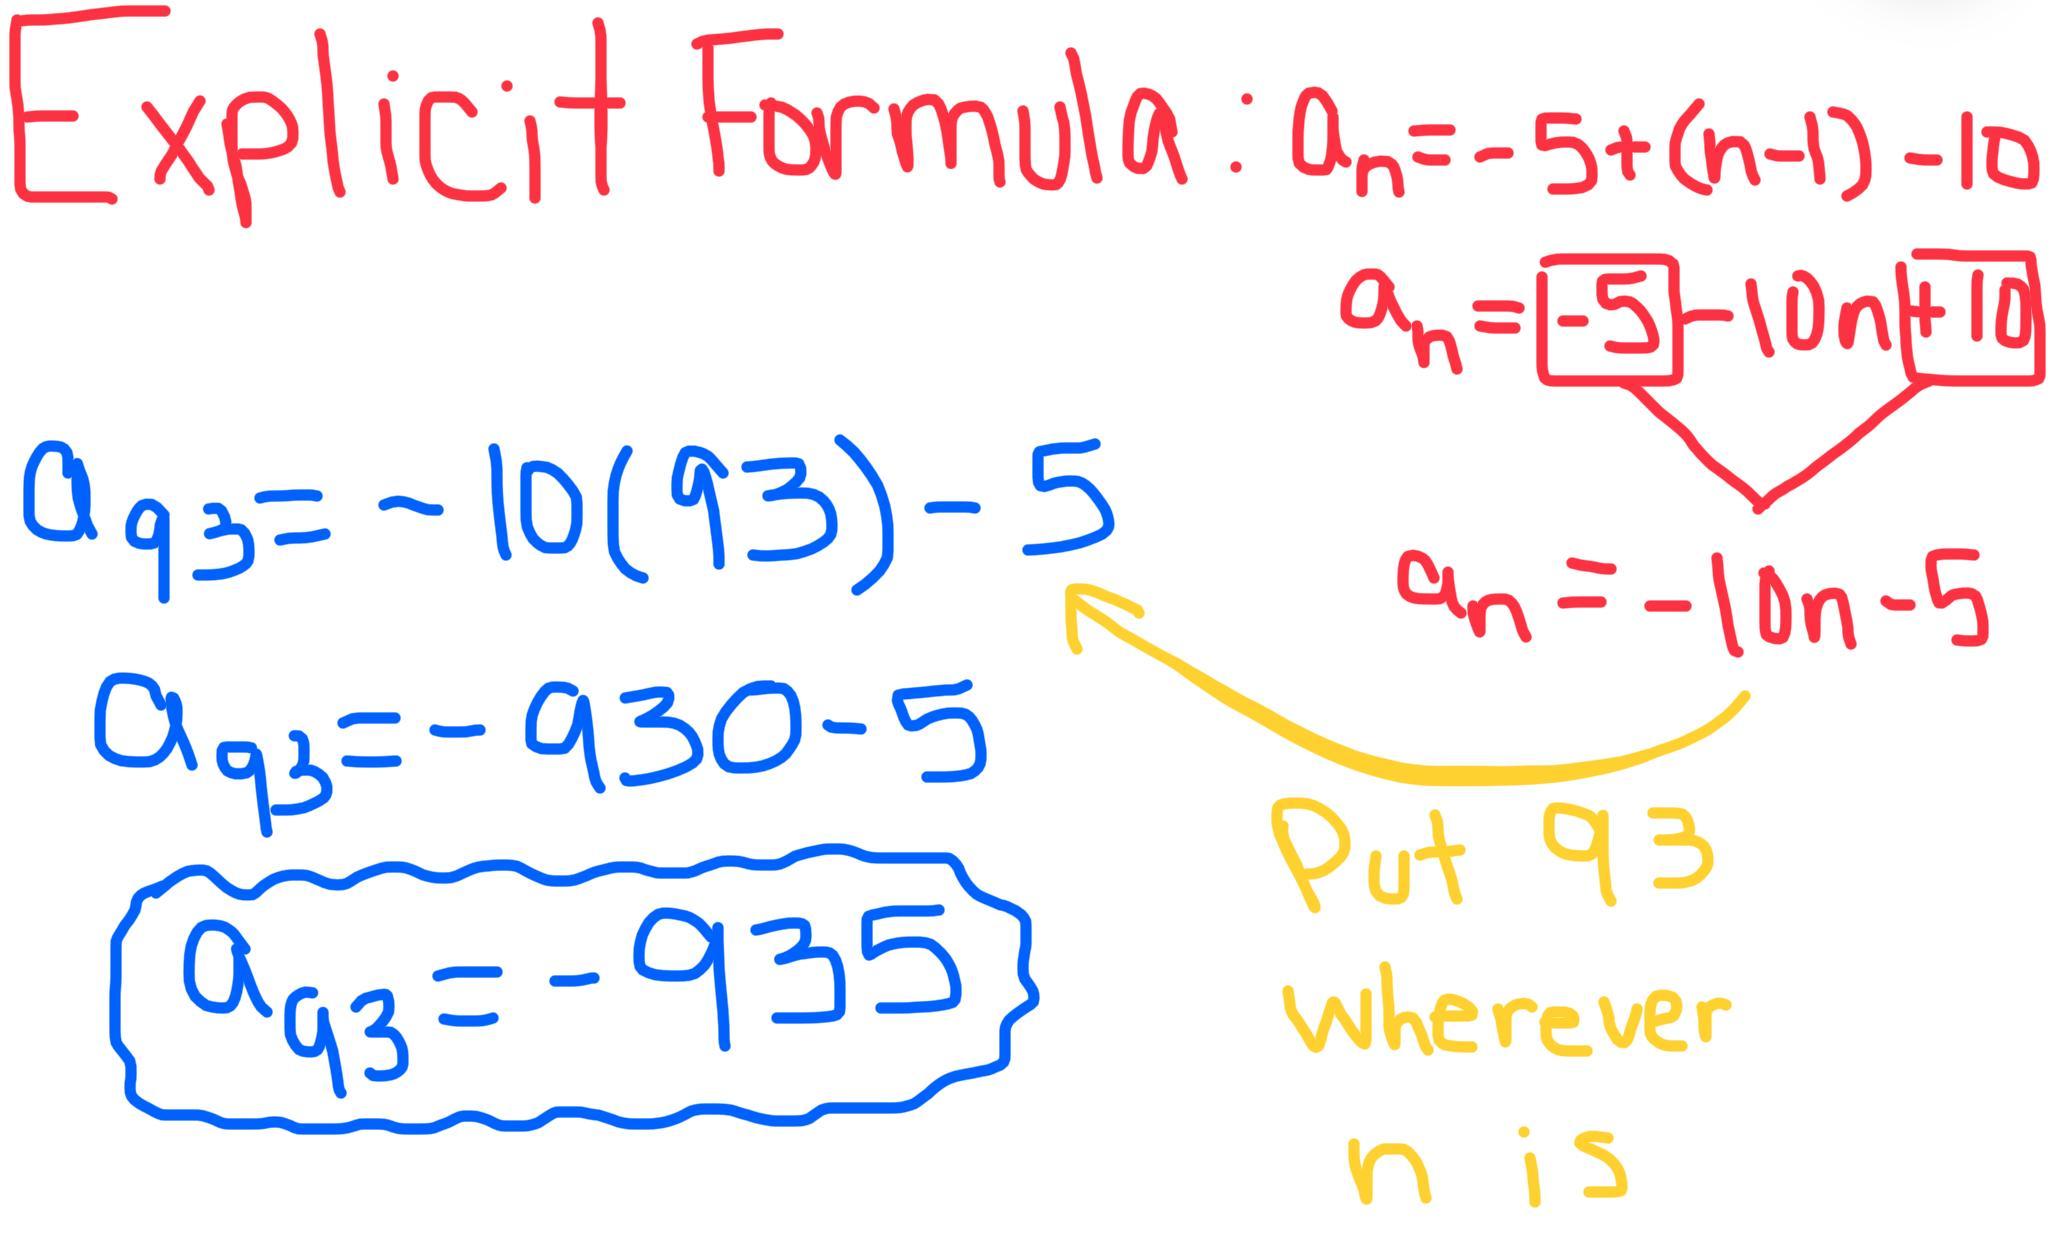 Explicit Formula: aₙ=-5+(n-1)-10
aₙ=-5-10n+10
aₙ=-10n-5
a₉₃=-10(93)-5
a₉₃=-930-5
a₉₃=-935
Put 93
wherever
n is